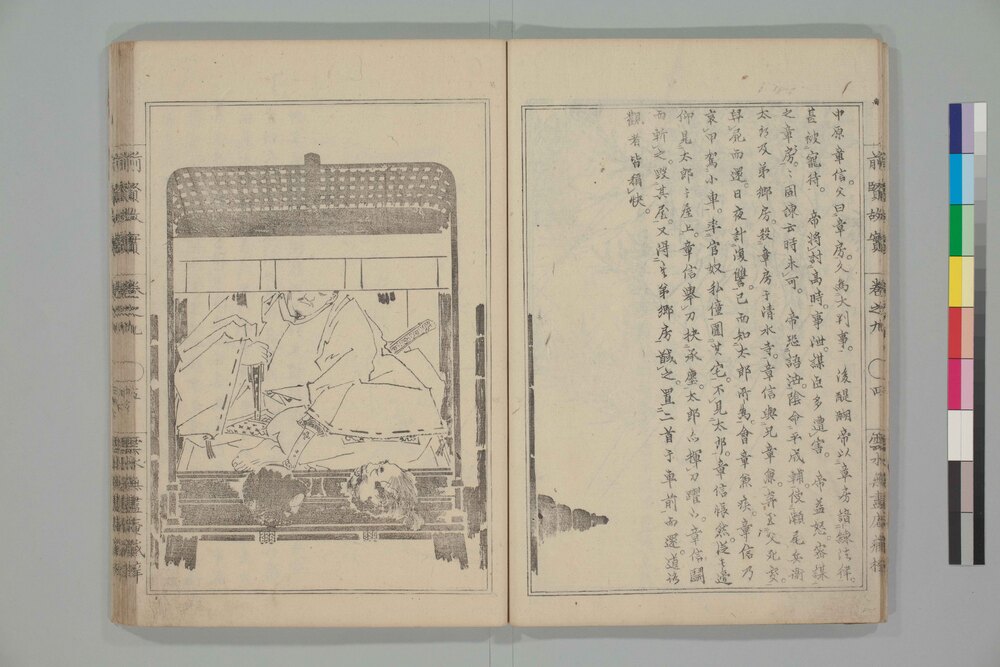 中原章信。父曰章房。久為大判事。後醍醐帝以章房諳練法律。
甚被寵待。帝將討高時。事泄。謀臣多遭害。帝益怒。密謀
之章房。〻固諫云時未可。帝恐語洩。陰命平成輔。使瀨尾兵衛
太郎及弟鄉房。殺章房于清水寺。章信與兄章兼。奔至父死處。
舁屍而還。日夜計復讐。已而知太郎所為。會章兼疾。章信乃
衷甲駕小車。率官奴私僮圍其宅。不見太郎。章信悵然。從士邊
仰見太郎〻屋上。章信舉刀抉承塵。太郎亦揮刀躍下。章信鬪
而斬之。毀其屋。又得其弟鄉房馘之。置二首于車前而還。道路
觀者皆稱快。
前賢故實 卷之九 〇 四 雲水無盡庵藏梓